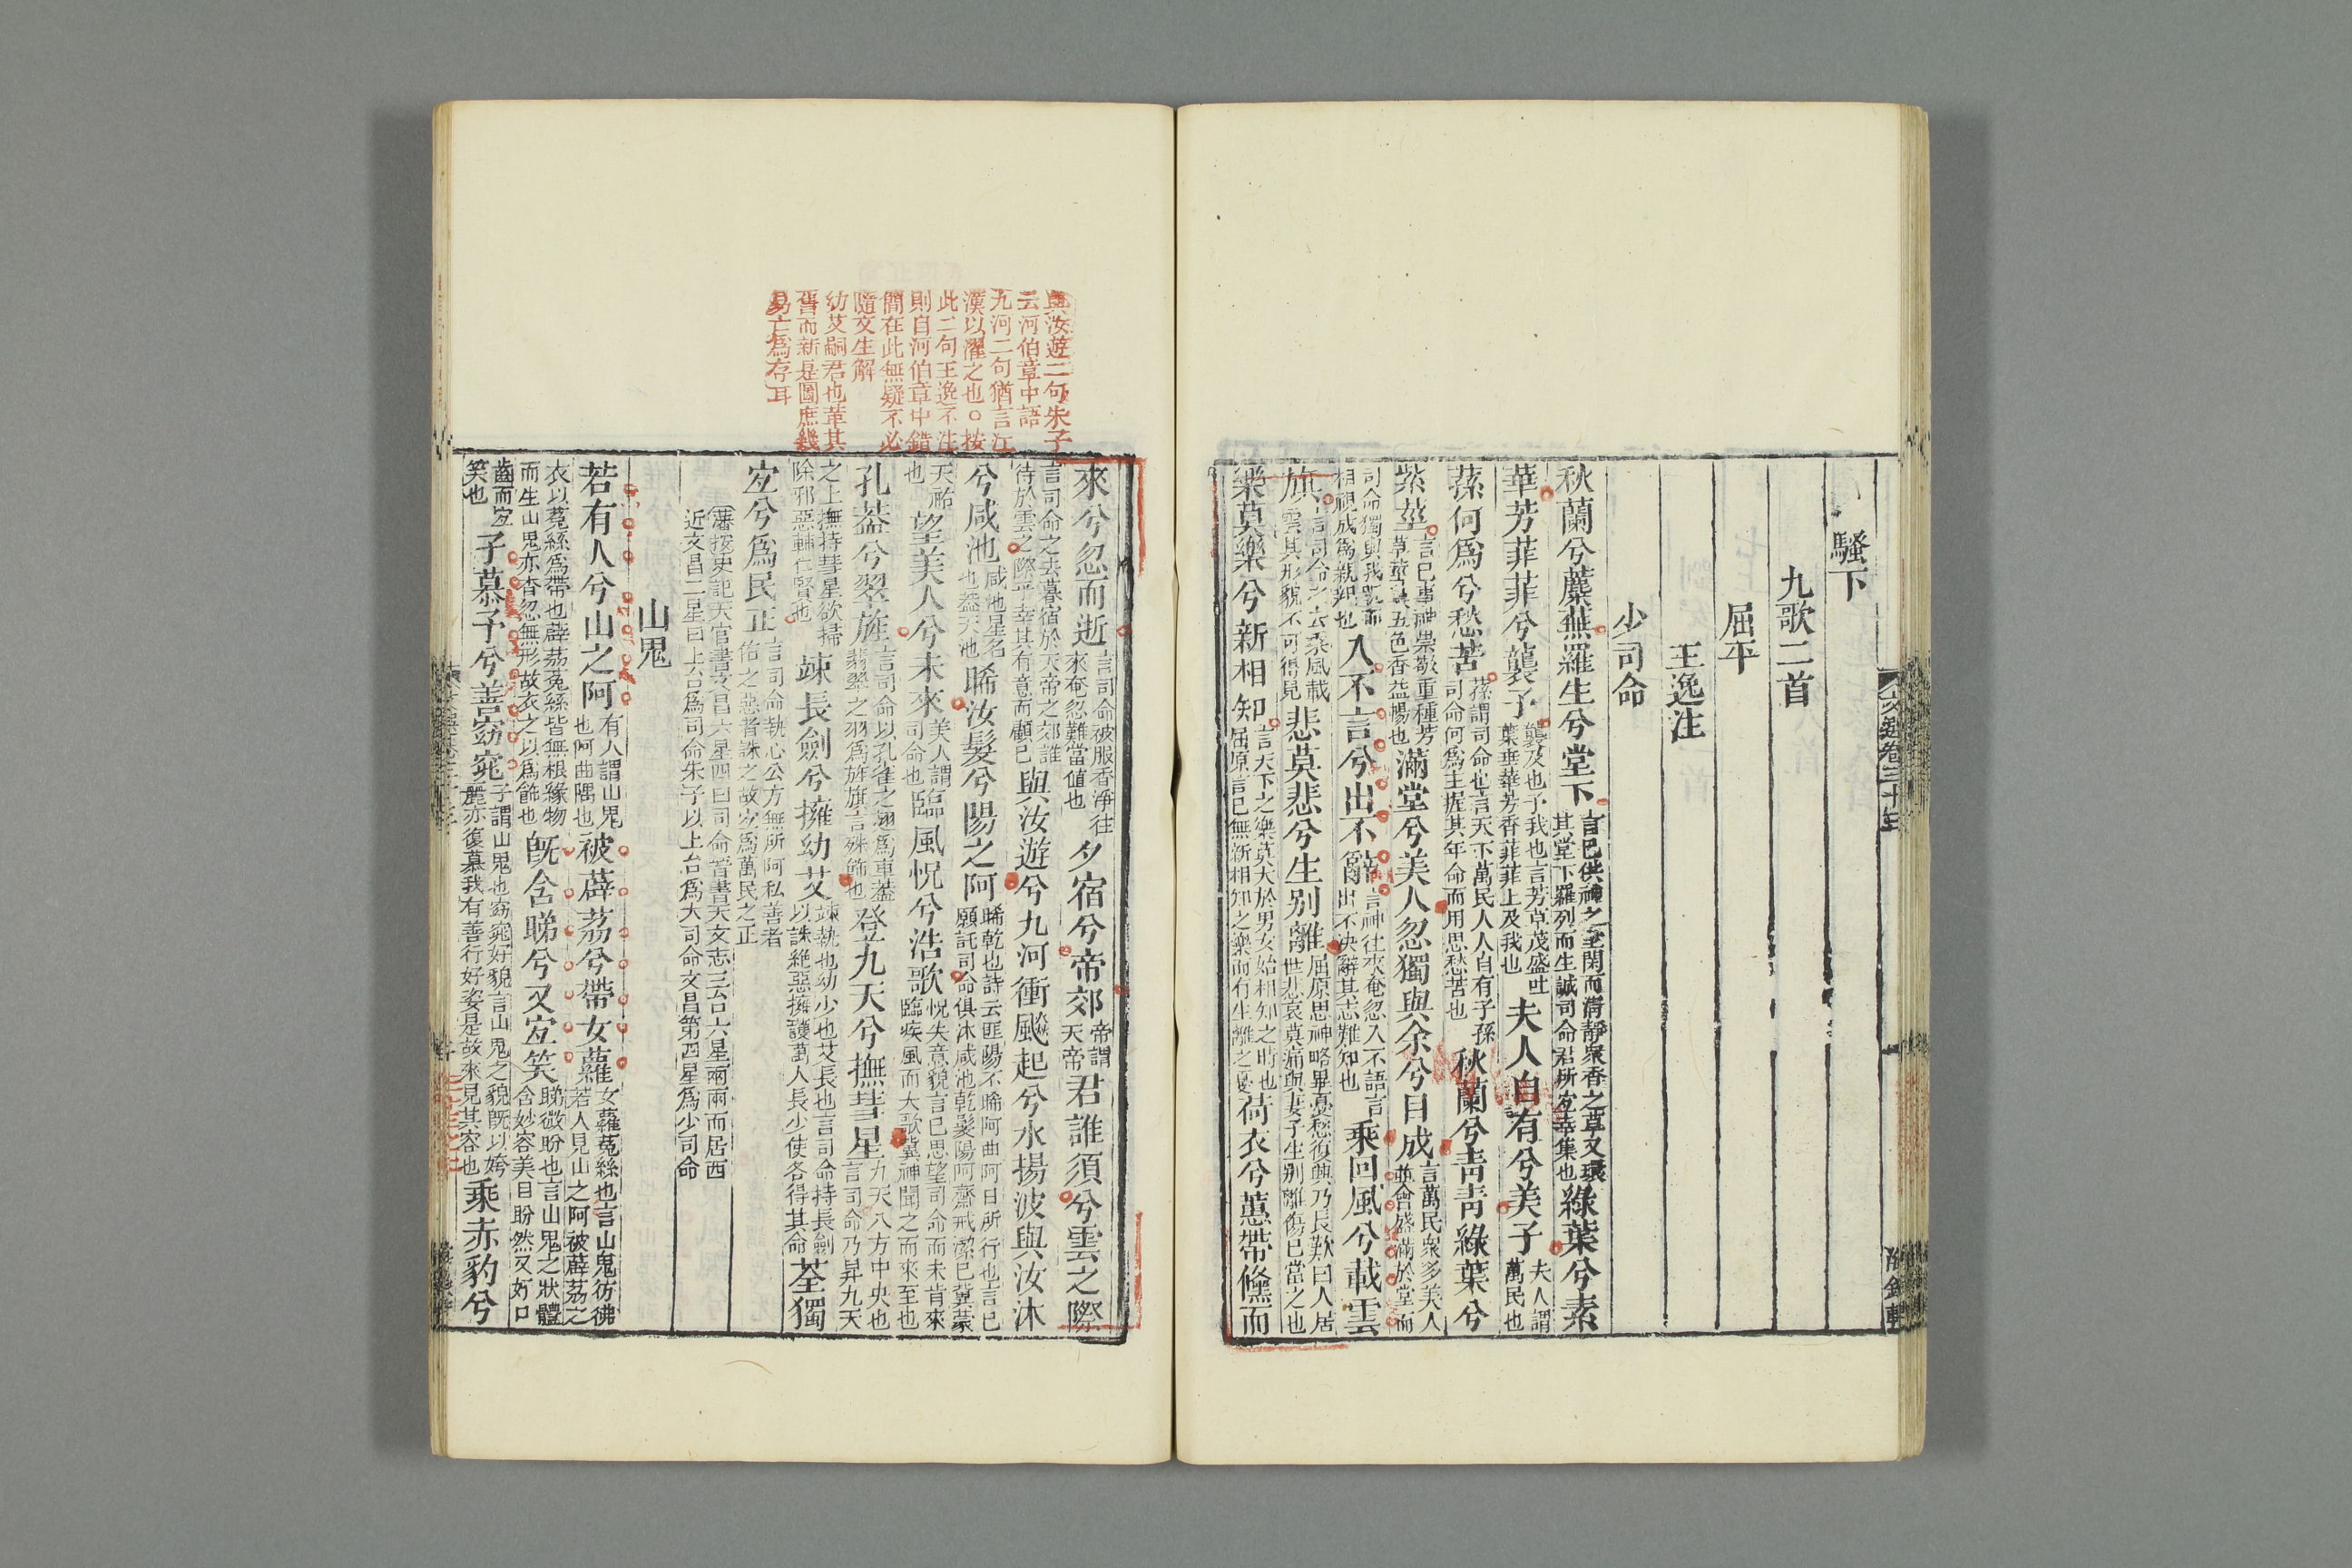 騷下
九歌二首
屈平
王逸注
少司命
秋蘭兮蘪蕪羅生兮堂下言己供神之室閑而清靜衆香之草又環其堂下羅列而生誠司命君所宜幸集也綠葉兮素
華芳菲菲兮襲予襲及也予我也言芳草茂盛吐葉垂華芳香菲菲上及我也夫人自有兮美子夫人謂萬民也
蓀何爲兮愁苦蓀謂司命也言天下萬民人人自有子孫司命何爲主握其年命而用思愁苦也秋蘭兮青青綠葉兮
紫莖言己事神崇敬重種芳草莖葉五色香益暢也滿堂兮美人忽獨與余兮目成言萬民衆多美人並會盛滿於堂而
司命獨與我睨而相視成爲親親也入不言兮出不辭言神往來奄忽入不語言出不訣辭其志難知也乘回風兮載雲
旗言司命之去乘風載雲其形貌不可得見悲莫悲兮生别離屈原思神略畢憂愁復興乃長歎曰人居世悲哀莫痛與妻子生别離傷己當之也
樂莫樂兮新相知言天下之樂莫大於男女始相知之時也屈原言己無新相知之樂而有生離之憂荷衣兮蕙帶儵而
與汝遊二句朱子
云河伯章中語
九河二句猶言江
漢以濯之也○按
此二句王逸不注
則自河伯章中錯
簡在此無疑不必
隨文生解
幼艾嗣君也革其
舊而新是圖庶幾
易亡爲存耳
來兮忽而逝言司命被服香淨往來奄忽難當值也夕宿兮帝郊帝謂天帝君誰須兮雲之際
言司命之去暮宿於天帝之郊誰待於雲之際乎幸其有意而顧己與汝遊兮九河衝飇起兮水揚波與汝沐
兮咸池咸池星名也蓋天池晞汝髮兮陽之阿晞乾也詩云匪陽不晞阿曲阿日所行也言己願託司命俱沐咸池乾髮陽阿齋戒潔己冀蒙
天祐也望美人兮未來美人謂司命也臨風怳兮浩歌怳失意貌言己思望司命而未肯來臨疾風而大歌冀神聞之而來至也
孔蓋兮翠旌言司命以孔雀之翅爲車蓋翡翠之羽爲旌旗言殊飾也登九天兮撫彗星九天八方中央也言司命乃昇九天
之上撫持彗星欲掃除邪惡輔仁賢也竦長劍兮擁幼艾竦執也幼少也艾長也言司命持長劍以誅絶惡擁護萬人長少使各得其命荃獨
宜兮爲民正言司命執心公方無所阿私善者佑之惡者誅之故宜爲萬民之正
潘按史記天官書文昌六星四曰司命晉書天文志三台六星兩兩而居西
近文昌二星曰上台爲司命朱子以上台爲大司命文昌第四星爲少司命
山鬼
若有人兮山之阿有人謂山鬼也阿曲隅也被薜茘兮帶女蘿女蘿菟絲也言山鬼彷彿若人見山之阿被薜茘之
衣以菟絲爲帶也薜茘菟絲皆無根緣物而生山鬼亦杳忽無形故衣之以爲飾也旣含睇兮又宜笑睇微盼也言山鬼之狀體含妙容美目盼然又好口
齒而宜笑也子慕予兮善窈窕子謂山鬼也窈窕好貌言山鬼之貌旣以姱麗亦復慕我有善行好姿是故來見其容也乘赤豹兮